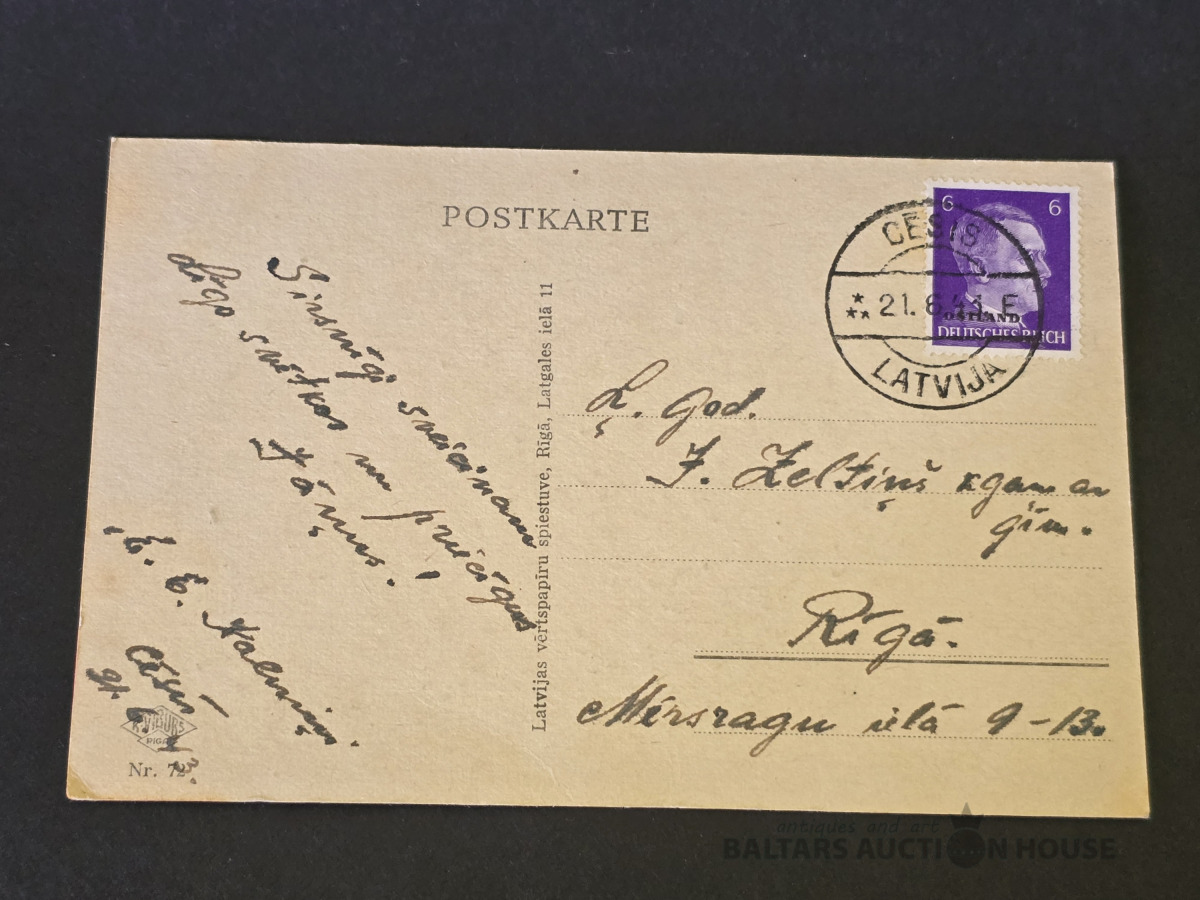 POSTKARTE
6 6
OSTLAND
DEUTSCHES REICH
CĒSIS
21. 6. E
LATVIJA
Sirsnīgi sveicinam
Līgo svētkos un priecīgus
Jāņus!
E. Kalniņi.
Cēsīs
Latvijas vērtspapīru spiestuve, Rīgā, Latgales ielā 11
Ļ. god.
J. Zeltiņš kgam ar
ģim.
Rīgā.
Mērsragu ielā 9-13.
RIGA
Nr. 72
antiques and art
BALTARS AUCTION HOUSE